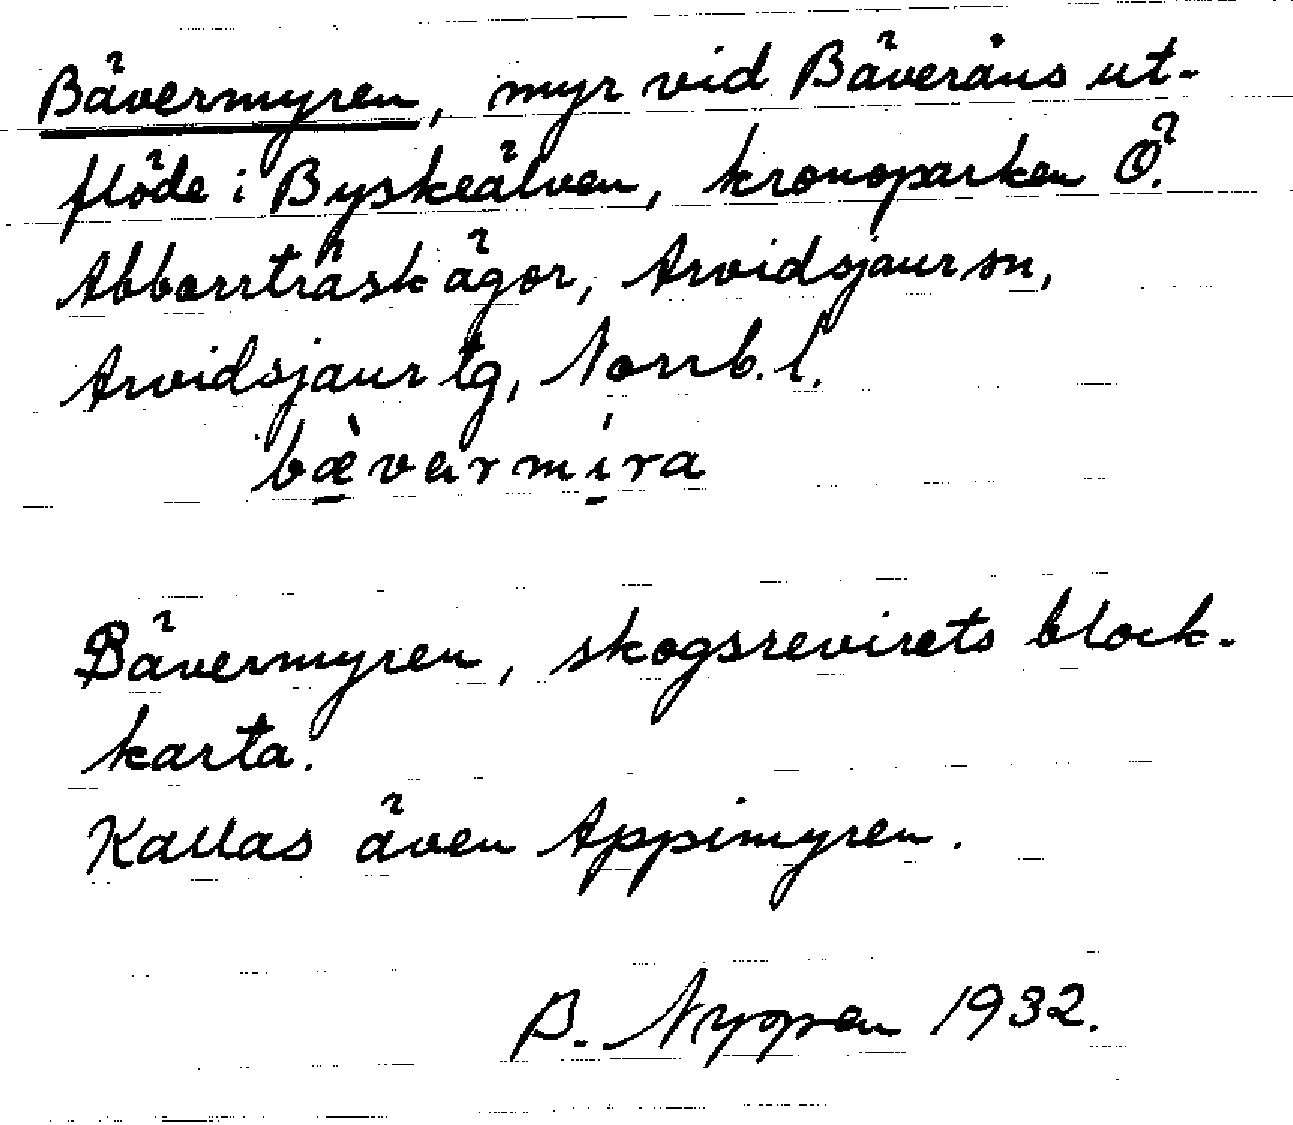 Bävermyren, myr vid Bäveråns ut-
flöde i Byskeälven, kronoparken Ö.
Abborrträsk ägor, Arvidsjaur sn,
Arvidsjaur tg, Norrb. l.
bæ̀vermíra
Bävermyren, skogsrevirets block-
karta.
Kallas även Appimyren.
B. Nyppen 1932.